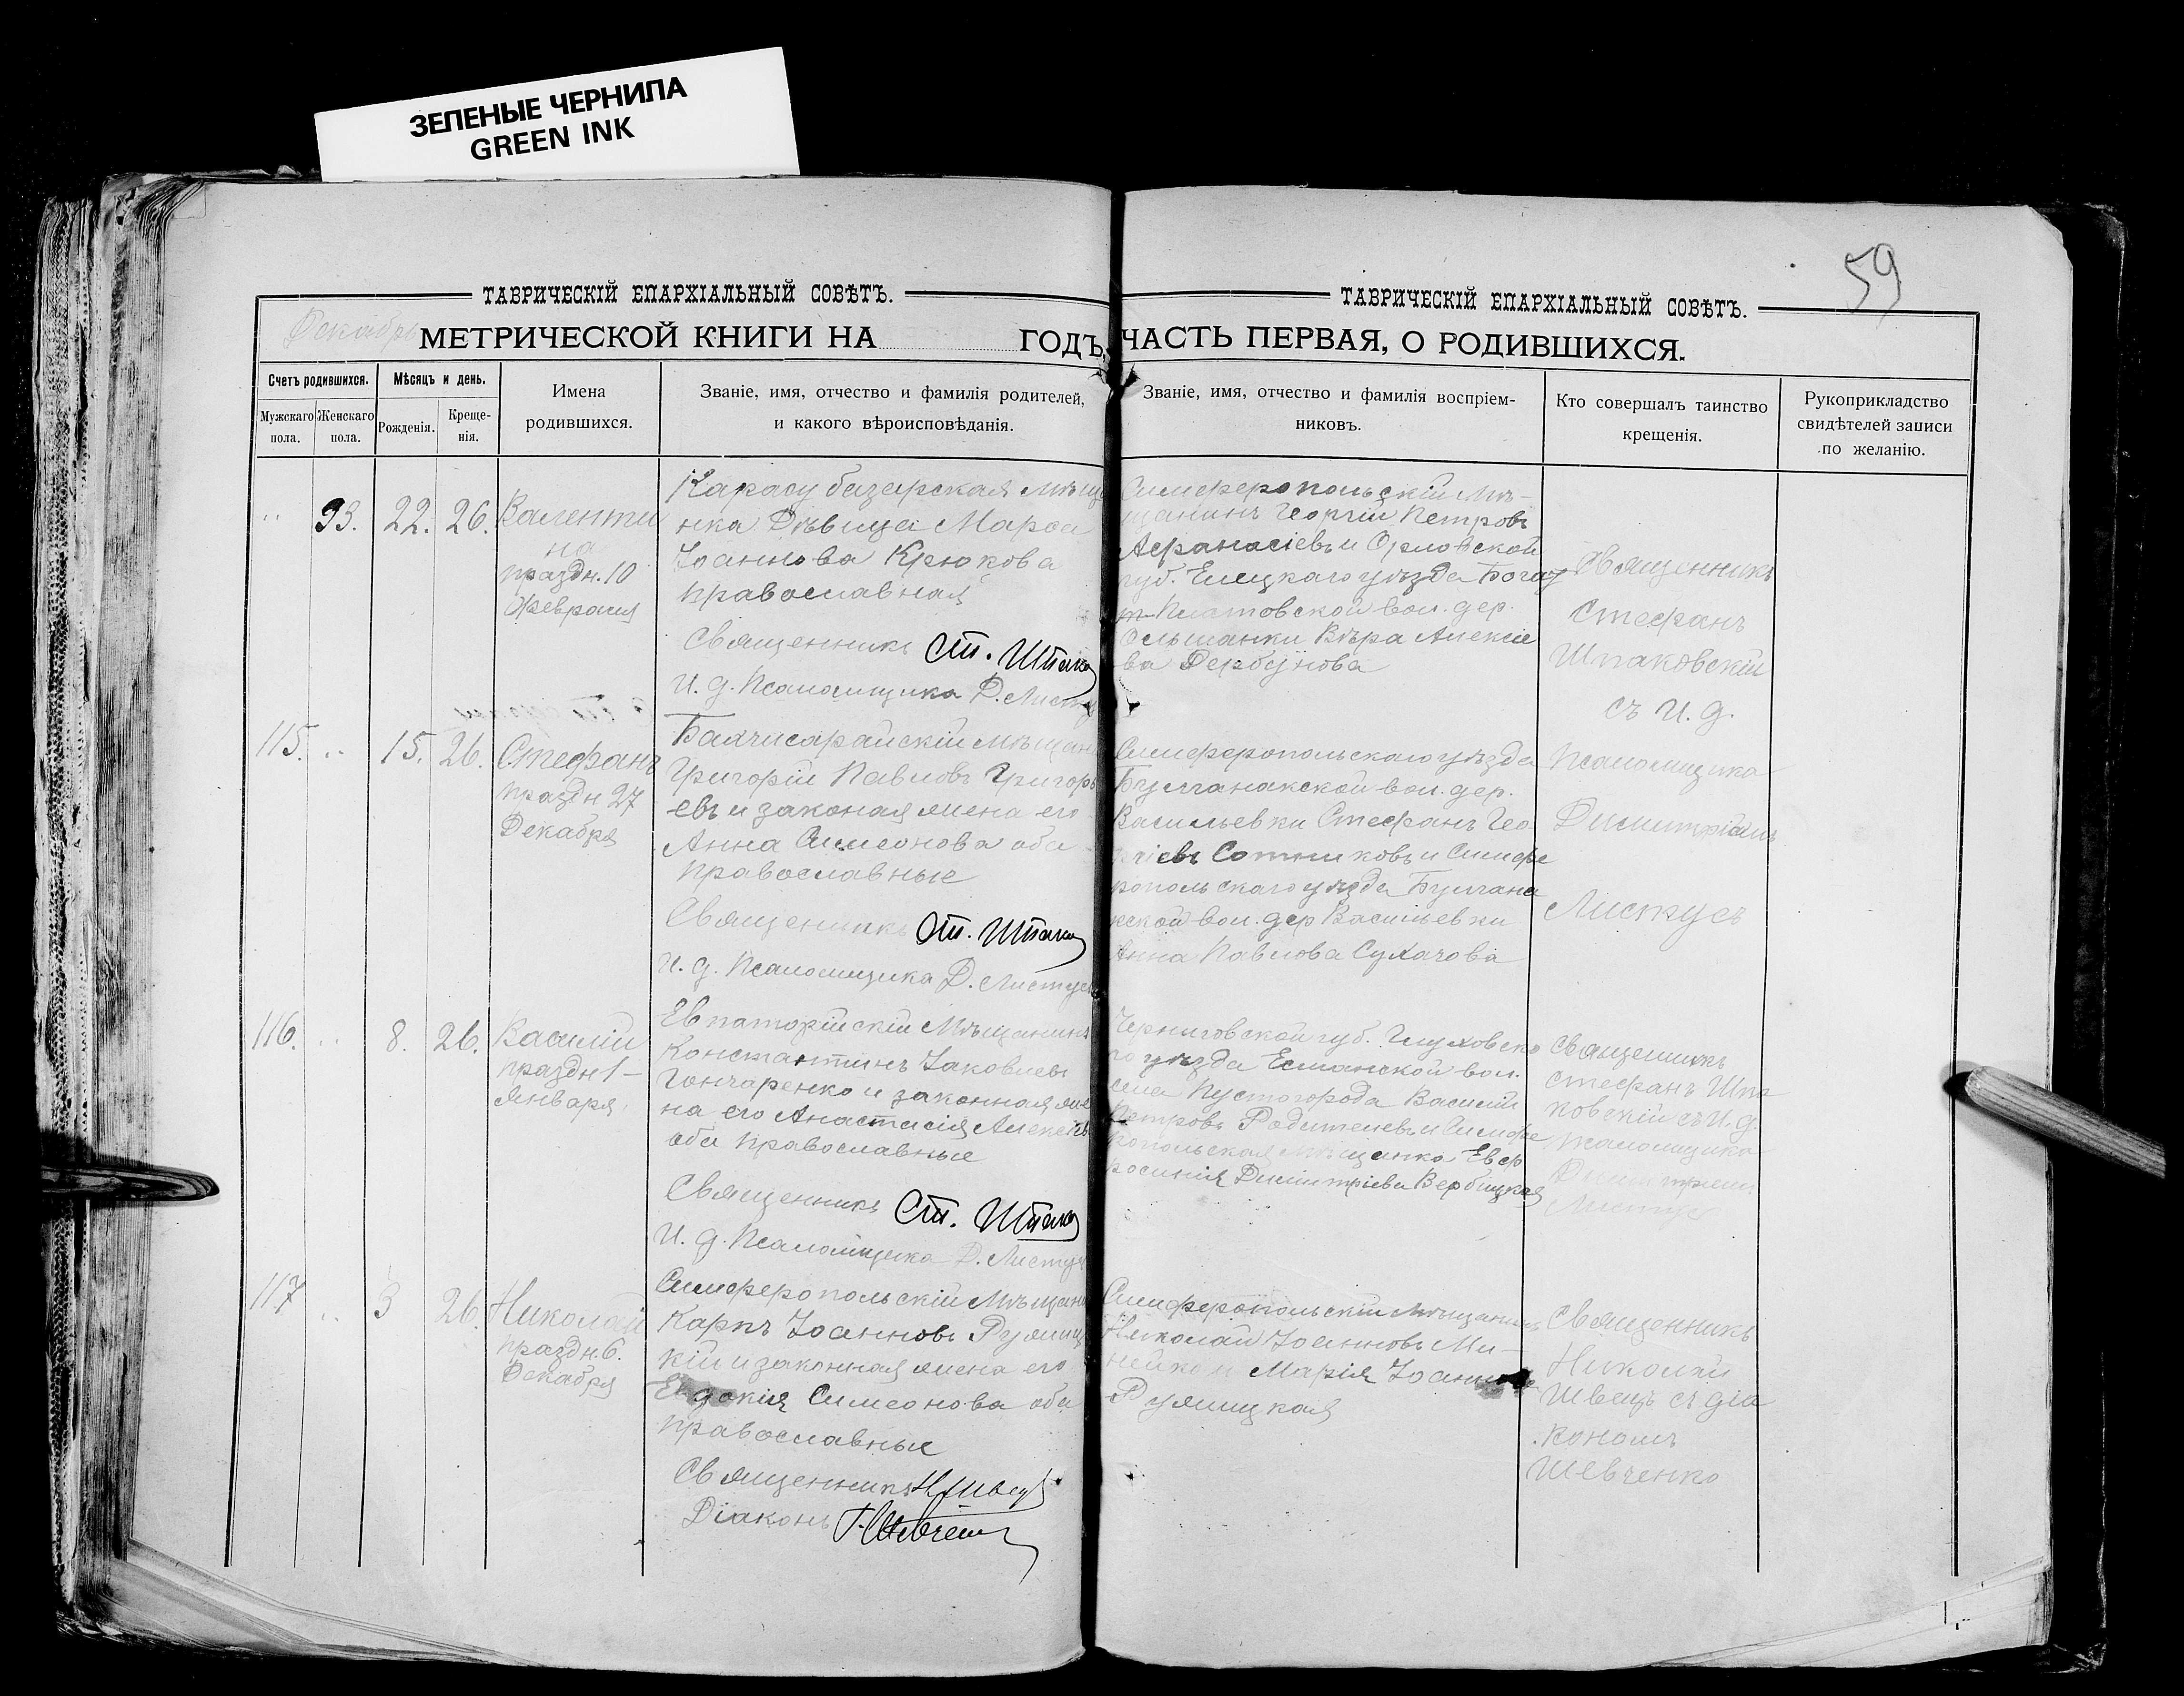 ЗЕЛЕНЫЕ ЧЕРНИЛА
GREEN INK
59
ТАВРИЧЕСКІЙ ЕПАРХІАЛЬНЫЙ СОВѢТЪ.
Декабрь МЕТРИЧЕСКОЙ КНИГИ НА ГОДЪ,
Счетъ родившихся.
Мужскаго пола.
Женскаго пола.
Мѣсяцъ и день.
Рожденія.
Креще-
нія.
Имена
родившихся.
Званіе, имя, отчество и фамилія родителей,
и какого вѣроисповѣданія.
ТАВРИЧЕСКІЙ ЕПАРХІАЛЬНЫЙ СОВѢТЪ.
ЧАСТЬ ПЕРВАЯ, О РОДИВШИХСЯ.
Званіе, имя, отчество и фамилія воспріем-
никовъ.
Кто совершалъ таинство
крещенія.
Рукоприкладство
свидѣтелей записи
по желанію.
93. 22. 26.
Валенти
на
праздн. 10
Февраля
Карасубазарская мѣща
нка дѣвица
Іоаннова Крюкова
православная
Священникъ Ст. Шпако
И. д. Псаломщика Д. Листу
Симферопольскій мѣ-
щанинъ Георгій Петровъ
Афанасіевъ и Орловской
губ. Елецкаго уѣзда
вол. дер.
Ольшанки Вѣра Алексіе
ва Дербунова
Священникъ
Стефанъ
Шпаковскій
съ И. д.
Псаломщика
Димитріемъ
Листусъ
115. 15. 26.
Стефанъ
праздн 27
Декабря
Бахчисарайскій мѣщани
Григорій Павловъ Григорь
евъ и законая жена его
Анна Симеонова оба
православные
Священникъ Ст. Шпако
И. д. Псаломщика Д. Листусъ
Симферопольскаго уѣзда
Булганакской вол. дер.
Васильевки Стефанъ Гео
ргіевъ Сотниковъ и Симфе
ропольскаго уѣзда Булгана
кской вол. дер Васильевки
Анна Павлова Сухачова
116. 8. 26.
Василій
праздн 1-
Января
Евпаторійскій мѣщанинъ
Константинъ Іаковлевъ
Гончаренко и законная же
на его Анастасія Алексѣе
оба православные
Священникъ Ст. Шпако
И. д. Псаломщика Д. Листу
Черниговской губ. Глуховска
го уѣзда Есманской вол.
села Пустогорода Василій
Петровъ Родителевъ и Симфе
ропольская мѣщанка Евф
росинія Димитріева Вербицкая
Священникъ
Стефанъ Шпа
ковскій съ И. д.
Псаломщика
Димитріемъ
Листусъ
117 3 26.
Николай
праздн. 6.
Декабря
Симферопольскій мѣщани
Карпъ Іоанновъ Ружиц
кій и законная жена его
Евдокія Симеонова оба
православные
Священникъ Н. Швецъ
Діаконъ Г. Шевчен
Симферопольскій мѣщанинъ
Николай Іоанновъ Ми-
нейко и Марія Іоаннова
Ружицкая
Священникъ
Николай
Швецъ съ діа
кономъ
Шевченко